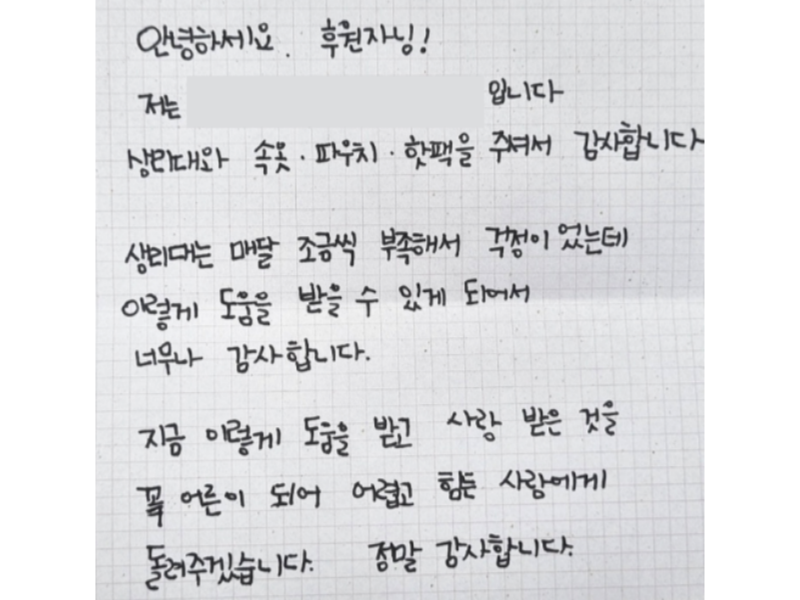 안녕하세요. 후원자님!
저는 입니다
생리대와 속옷·파우치·핫팩을 주셔서 감사합니다
생리대는 매달 조금씩 부족해서 걱정이 었는데
이렇게 도움을 받을 수 있게 되어서
너무나 감사합니다.
지금 이렇게 도움을 받고 사랑 받은 것을
꼭 어른이 되어 어렵고 힘든 사람에게
돌려주겠습니다. 정말 감사합니다.